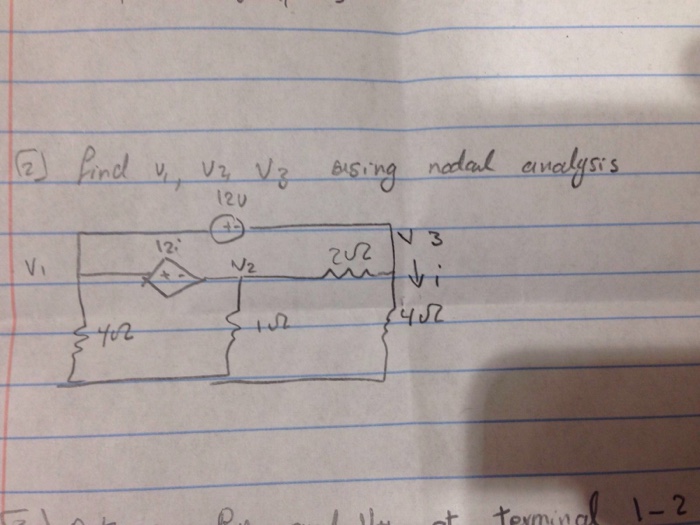 [2] find v1, v2, v3 using nodal analysis
12v
v3
12i
2Ω
V1
v2
i
4Ω
1Ω
4Ω
at terminal 1-2